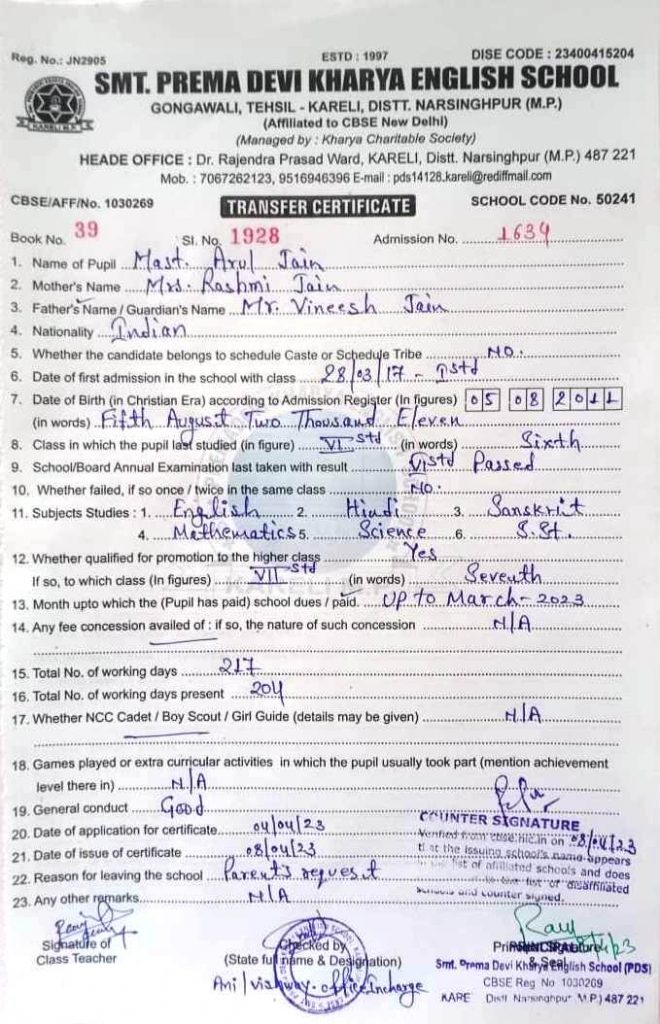 Reg. No.: JN2905 ESTD : 1997 DISE CODE : 23400415204
SMT. PREMA DEVI KHARYA ENGLISH SCHOOL
GONGAWALI, TEHSIL - KARELI, DISTT. NARSINGHPUR (M.P.)
(Affiliated to CBSE New Delhi)
(Managed by : Kharya Charitable Society)
KARELI M.P.
HEADE OFFICE : Dr. Rajendra Prasad Ward, KARELI, Distt. Narsinghpur (M.P.) 487 221
Mob. : 7067262123, 9516946396 E-mail : pds14128.kareli@rediffmail.com
CBSE/AFF/No. 1030269 TRANSFER CERTIFICATE SCHOOL CODE No. 50241
Book No. 39 Sl. No. 1928 Admission No. 1634
1. Name of Pupil Mast. Arul Jain
2. Mother's Name Mrs. Rashmi Jain
3. Father's Name / Guardian's Name Mr. Vineesh Jain
4. Nationality Indian
5. Whether the candidate belongs to schedule Caste or Schedule Tribe No.
6. Date of first admission in the school with class 28/03/17 - Istd
7. Date of Birth (in Christian Era) according to Admission Register (In figures) 05 08 2011
(in words) Fifth August Two Thousand Eleven
8. Class in which the pupil last studied (in figure) VI std (in words) Sixth
9. School/Board Annual Examination last taken with result VIstd Passed
10. Whether failed, if so once / twice in the same class No.
11. Subjects Studies : 1. English 2. Hindi 3. Sanskrit
4. Mathematics 5. Science 6. S.St.
12. Whether qualified for promotion to the higher class Yes
If so, to which class (In figures) VII std (in words) Seventh
13. Month upto which the (Pupil has paid) school dues / paid. Up to March-2023
14. Any fee concession availed of : if so, the nature of such concession N/A
15. Total No. of working days 217
16. Total No. of working days present 204
17. Whether NCC Cadet / Boy Scout / Girl Guide (details may be given) N/A
18. Games played or extra curricular activities in which the pupil usually took part (mention achievement
level there in) N/A
19. General conduct Good
COUNTER SIGNATURE
20. Date of application for certificate 04/04/23
Verified from cbse.nic.in on 08/04/23
that the issuing school's name appears
21. Date of issue of certificate 08/04/23
list of affiliated schools and does
22. Reason for leaving the school Parent's request
list of disaffiliated
schools and counter signed.
23. Any other remarks N/A
Signature of
Class Teacher
Checked by
(State full name & Designation)
office Incharge
PRINCIPAL
& Seal
Smt. Prema Devi Kharya English School (PDS)
CBSE Reg No 1030269
KARE Distt Narsinghpur M.P.) 487 221